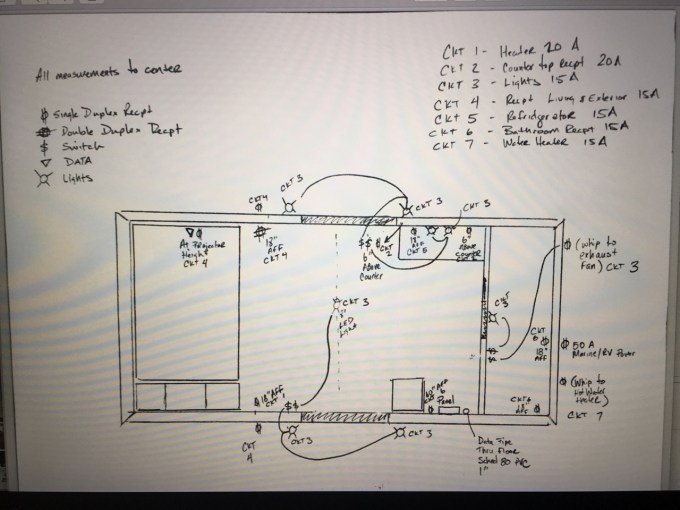 All measurements to center
Single Duplex Recpt
Double Duplex Recpt
Switch
DATA
Lights
CKT 1 - Heater 20 A
CKT 2 - Counter top Recpt 20A
CKT 3 - Lights 15A
CKT 4 - Recpt Living & Exterior 15A
CKT 5 - Refridgerator 15A
CKT 6 - Bathroom Recpt 15A
CKT 7 - Water Heater 15A
CKT 3
CKT4
CKT 3
CKT 3
At Projector
Height
CKT 4
18"
AFF
CKT 4
6"
Above
Counter
CKT
2
18"
AFF
CKT 5
6"
Above
Counter
(whip to
exhaust
Fan) CKT 3
CKT 3
LED
Light
CKT
3
CKT
6
18"
AFF
50 A
Marine/RV Power
(Whip to
Hot Water
Heater)
CKT 7
18" AFF
CKT 1
CKT
4
CKT 3
CKT 3
Panel
Data Pipe
Thru Floor
Sched 80 PVC
1"